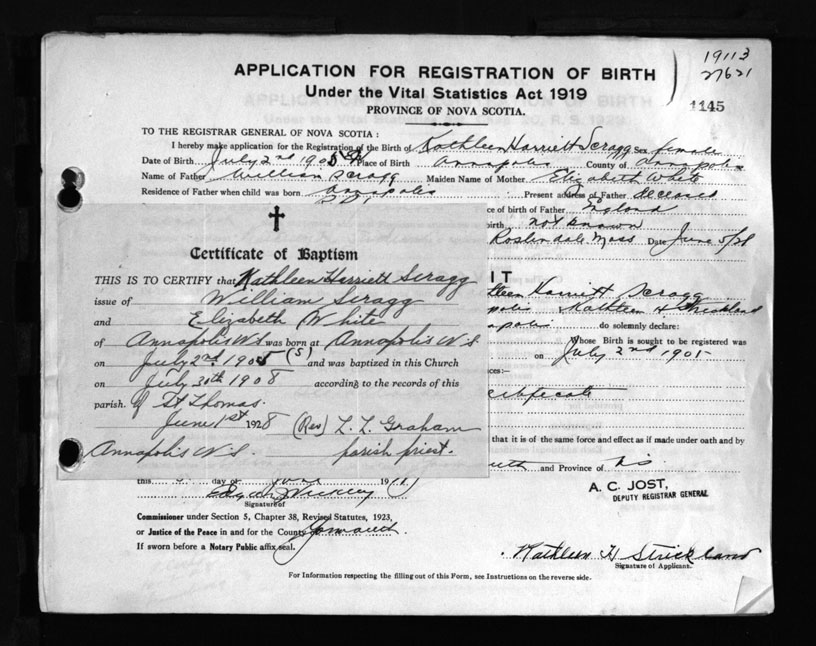 19113
27621
1145
APPLICATION FOR REGISTRATION OF BIRTH
Under the Vital Statistics Act 1919
PROVINCE OF NOVA SCOTIA.
TO THE REGISTRAR GENERAL OF NOVA SCOTIA :
I hereby make application for the Registration of the Birth of Kathleen Harriett Scragg Sex female
Date of Birth July 2nd 1905 Place of Birth Annapolis County of Annapolis
Name of Father William Scragg Maiden Name of Mother Elizabeth White
Residence of Father when child was born Annapolis Present address of Father deceased
ce of birth of Father England
irth not known
Roslindale Mass Date June 5/28
IT
thleen Harriett Scragg
polis Kathleen H Strickland
apolis do solemnly declare:
Whose Birth is sought to be registered was
on July 2nd 1905
ces:—
ertificate
that it is of the same force and effect as if made under oath and by
outh and Province of N.S.
A. C. JOST,
DEPUTY REGISTRAR GENERAL
Certificate of Baptism
THIS IS TO CERTIFY that Kathleen Harriett Scragg
issue of William Scragg
and Elizabeth White
of Annapolis N.S. was born at Annapolis N.S
on July 2nd 1905 (5) and was baptized in this Church
on July 30th 1908 according to the records of this
parish. of St Thomas.
June 1st 1928 (Rev) L. L. Graham
Annapolis N.S. parish priest.
this day of June 19
Signature of
Commissioner under Section 5, Chapter 38, Revised Statutes, 1923,
or Justice of the Peace in and for the County Yarmouth.
If sworn before a Notary Public affix seal.
Kathleen H Strickland
Signature of Applicant.
For Information respecting the filling out of this Form, see Instructions on the reverse side.